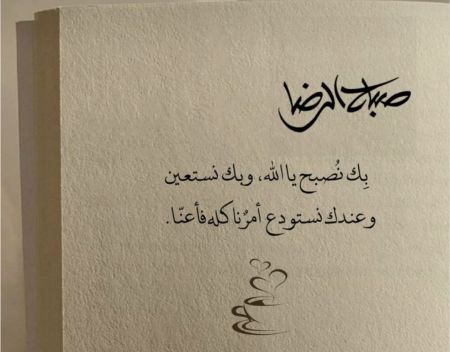 صباح الرضا
بِك نُصبح يا الله، وبك نستعين
وعندك نستودع أمرُنا كله فأعنّا.